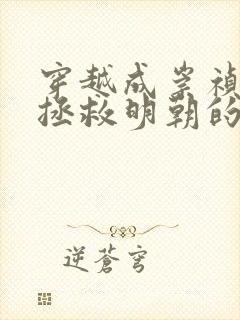 穿越成崇禎
拯救明朝的
逆蒼穹